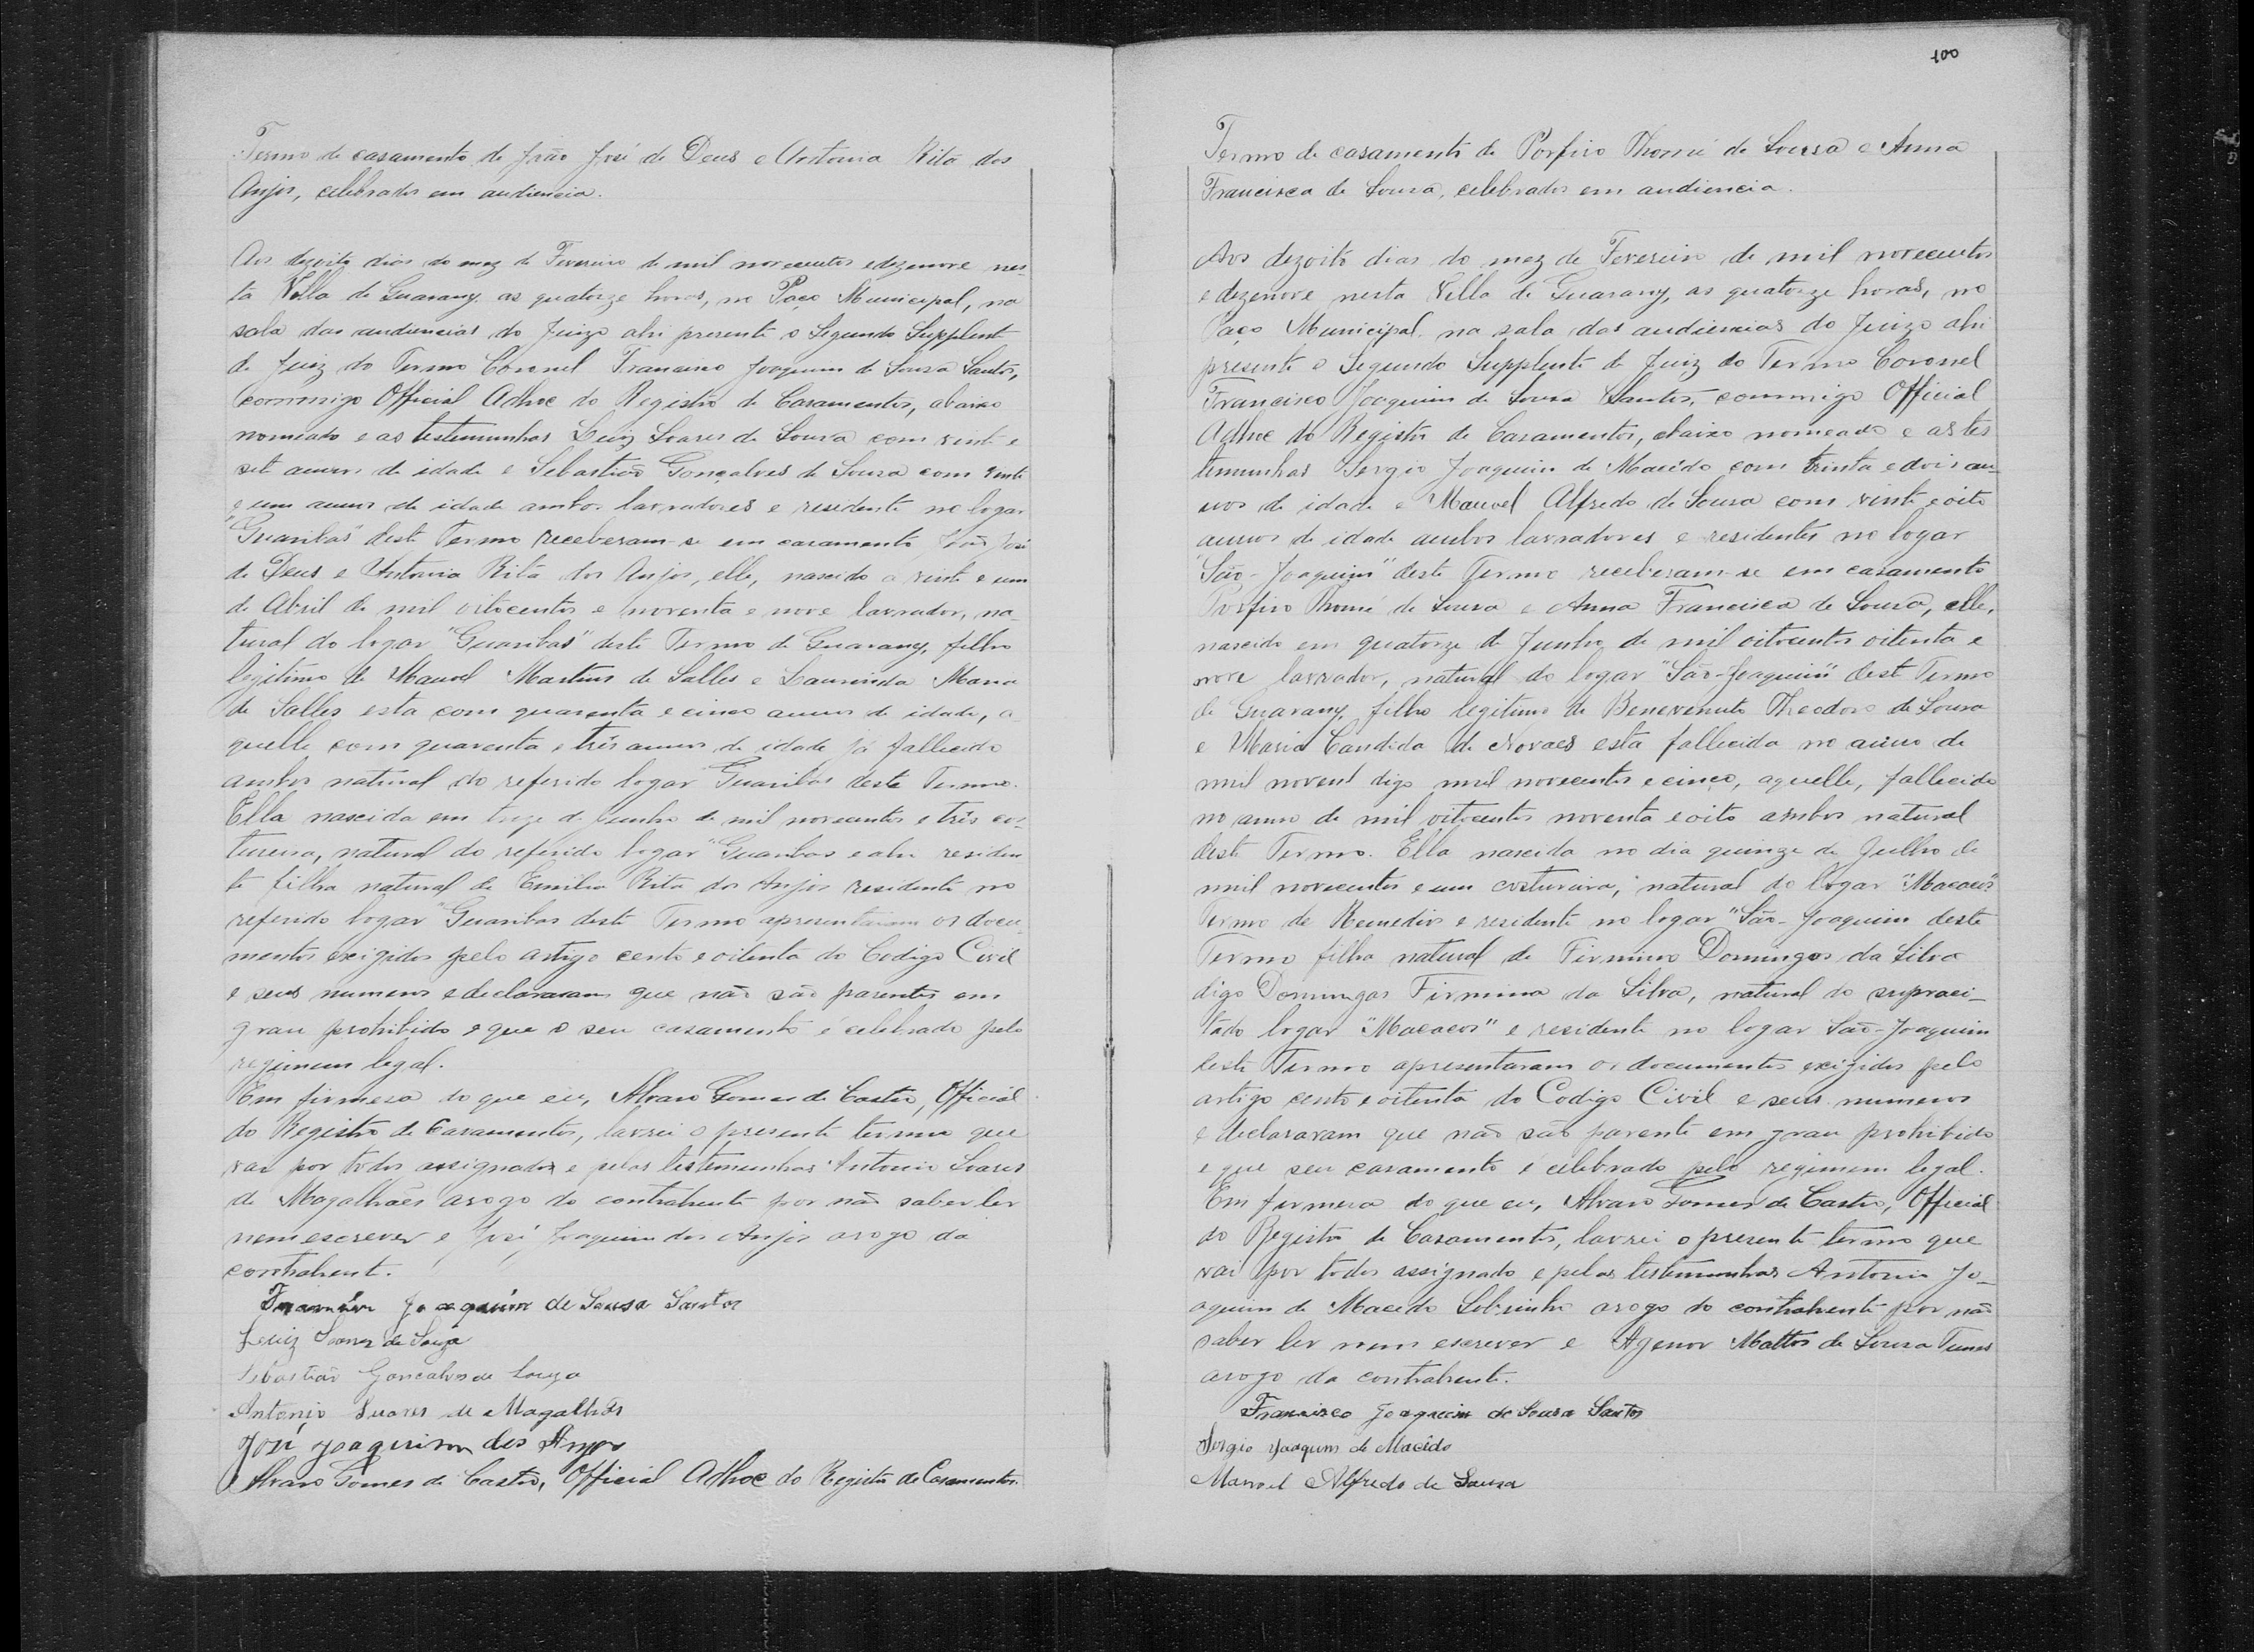 Termo de casamento de João José de Deus e Antonia Rita dos
Anjos, celebrados em audiencia.
Aos dezoito dias do mez de Fevereiro de mil novecentos e dezenove nes-
ta Villa de Guarany as quatorze horas, no Paço Municipal, na
sala das audiencias do Juizo ahi presente o Segundo Supplent
de Juiz do Termo Coronel Francisco Joaquim de Sousa Santos,
commigo Official Adhoc do Registro de Casamentos, abaixo
nomeado e as testemunhas Luiz Soares de Sousa com vinte e
sete annos de idade e Sebastião Gonçalves de Sousa com vinte
e um annos de idade ambos lavradores e residente no logar
"Guaribas" deste Termo receberam-se em casamento João José
de Deus e Antonia Rita dos Anjos, elle, nascido a vinte e um
de Abril de mil oitocentos e noventa e nove lavrador, na-
tural do logar "Guaribas" deste Termo de Guarany, filho
legitimo de Manoel Martins de Salles e Laurinda Maria
de Salles esta com quarenta e cinco annos de idade, a
quelle com quarenta e três annos de idade já fallecido
ambos natural do referido logar Guaribas deste Termo.
Ella nascida em treze de Junho de mil novecentos e três cos-
tureira, natural do referido logar "Guaribas e ahi residen
te filha natural de Emilia Rita dos Anjos residente no
referido logar "Guaribas deste Termo apresentaram os docu-
mentos exigidos pelo artigo cento e oitenta do Codigo Civil
e seus numeros e declararam que não são parentes em
grau prohibido e que o seu casamento é celebrado pelo
regimem legal.
Em firmesa do que eu, Alvaro Gomes de Castro, Official
do Registro de Casamentos, lavrei o presente termo que
vai por todos assignados e pelas testemunhas Antonio Soares
de Magalhães arogo do contrahente por não saber ler
nem escrever e José Joaquim dos Anjos arogo da
contrahent.
Francisco Joaquim de Sousa Santos
Luiz Soares de Souza
Sebastião Gonçalves de Souza
Antonio Suares de Magalhãs
José Joaquim dos Anjos
Alvaro Gomes de Castro, Official Adhoc do Registro de Casamentos.
100
Termo de casamento de Porfirio Thomé de Sousa e Anna
Francisca de Sousa, celebrados em audiencia.
Aos dezoito dias do mez de Fevereiro de mil novecentos
e dezenove nesta Villa de Guarany, as quatorze horas, no
Paço Municipal, na sala das audiencias do Juizo ahi
presente o Segundo Supplente de Juiz do Termo Coronel
Francisco Joaquim de Sousa Santos, commigo Official
Adhoc do Registro de Casamentos, abaixo nomeado e as tes
temunhas Sergio Joaquim de Macêdo com trinta e dois an-
nos de idade e Manoel Alfredo de Sousa com vinte e oito
annos de idade ambos lavradores e residentes no logar
"São-Joaquim" deste Termo receberam-se em casamento
Porfiro Thomé de Sousa e Anna Francisca de Sousa, elle,
nascido em quatorze de Junho de mil oitocentos oitenta e
nove lavrador, natural do logar "São-Joaquim" dest Termo
de Guarany, filho legitimo de Benevenuto Theodoro de Sousa
e Maria Candida de Novaes esta fallecida no anno de
mil novent digo mil novecentos e cinco, aquelle, fallecido
no anno de mil oitocentos noventa e oito ambos natural
deste Termo. Ella nascida no dia quinze de Julho de
mil novecentos e um costureira, natural do logar "Macacos"
Termo de Remedios e residente no logar "São-Joaquim deste
Termo filha natural de Firmino Domingos da Silva
digo Domingas Firmina da Silva, natural do supraci-
tado logar "Macacos" e residente no logar São-Joaquim
deste Termo apresentaram os documentos exigidos pelo
artigo cento e oitenta do Codigo Civil e seus numeros
e declararam que não são parente em grau prohibido
e que seu casamento é celebrado pelo regimem legal.
Em firmesa do que eu, Alvaro Gomes de Castro, Official
do Registro de Casamentos, lavrei o presente termo que
vai por todos assignado e pelas testemunhas Antonio Jo-
aquim de Macedo Sobrinho arogo do contrahente por não
saber ler nem escrever e Agenor Mattos de Sousa Tunes
arogo da contrahente.
Francisco Joaquim de Sousa Santos
Sergio Joaquim de Macêdo
Manoel Alfredo de Sousa